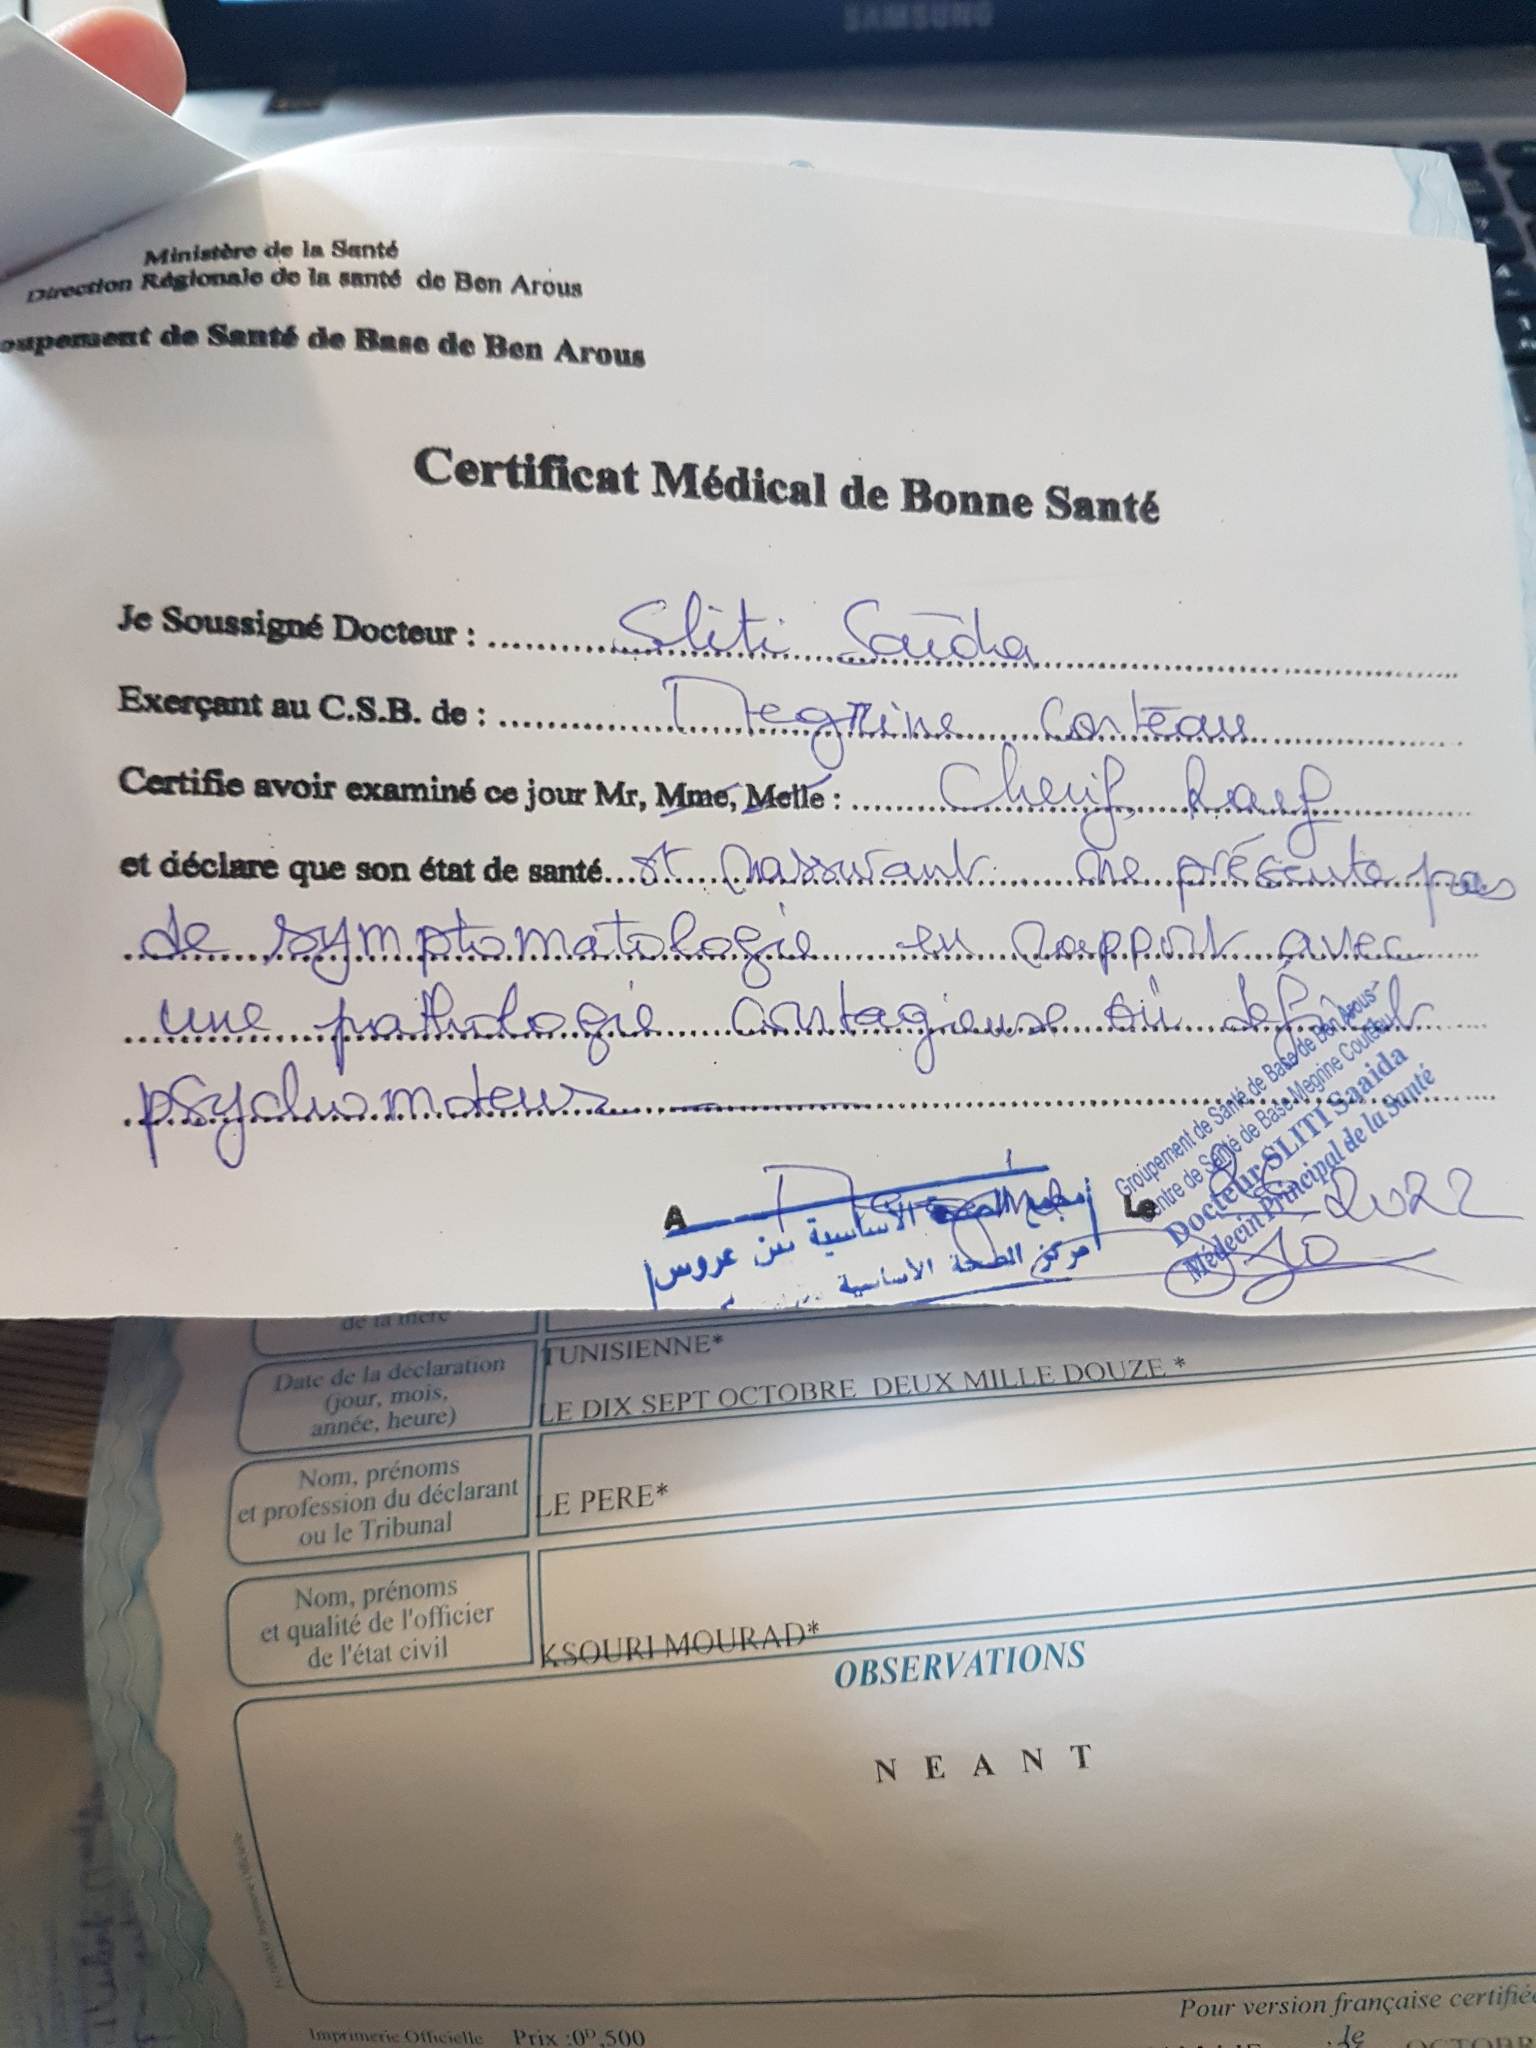 SAMSUNG
Ministère de la Santé
Direction Régionale de la santé de Ben Arous
oupement de Santé de Base de Ben Arous
Certificat Médical de Bonne Santé
Je Soussigné Docteur : Sliti Saïda
Exerçant au C.S.B. de : Megrine Coteau
Certifie avoir examiné ce jour Mr, Mme, Melle : Cherif
et déclare que son état de santé st rassurant ne présente pas
de symptomatologie en rapport avec
une pathologie contagieuse ou déficit
psychomoteur
Groupement de Santé de Base de Ben Arous
Centre de Santé de Base Megrine Couteau
Docteur SLITI Saaida
Médecin Principal de la Santé
A Megrine Le 2022
مجمع الصحة الأساسية بن عروس
مركز الصحة الأساسية
de la mère
TUNISIENNE*
Date de la déclaration
(jour, mois,
année, heure)
LE DIX SEPT OCTOBRE DEUX MILLE DOUZE *
Nom, prénoms
et profession du déclarant
ou le Tribunal
LE PERE*
Nom, prénoms
et qualité de l'officier
de l'état civil
KSOURI MOURAD*
OBSERVATIONS
N E A N T
Pour version française certifiée
Imprimerie Officielle Prix :0ᴰ,500
le
OCTOBR